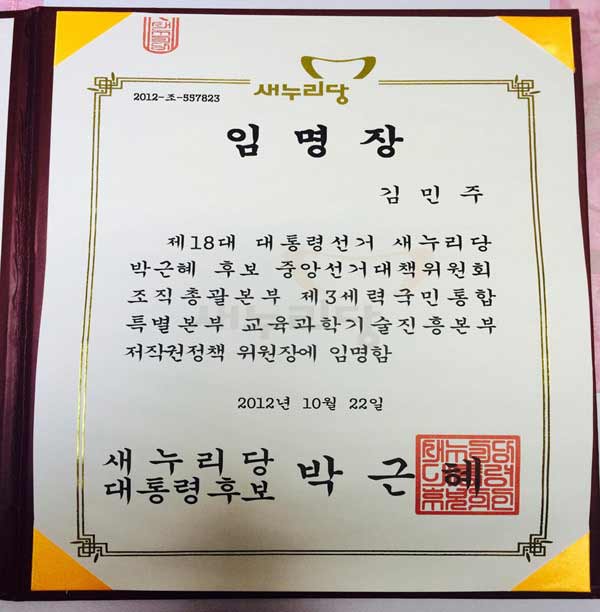 새누리당
2012-조-557823
임명장
김민주
제18대 대통령선거 새누리당
박근혜 후보 중앙선거대책위원회
조직총괄본부 제3세력국민통합
특별본부 교육과학기술진흥본부
저작권정책 위원장에 임명함
2012년 10월 22일
새누리당
대통령후보 박근혜